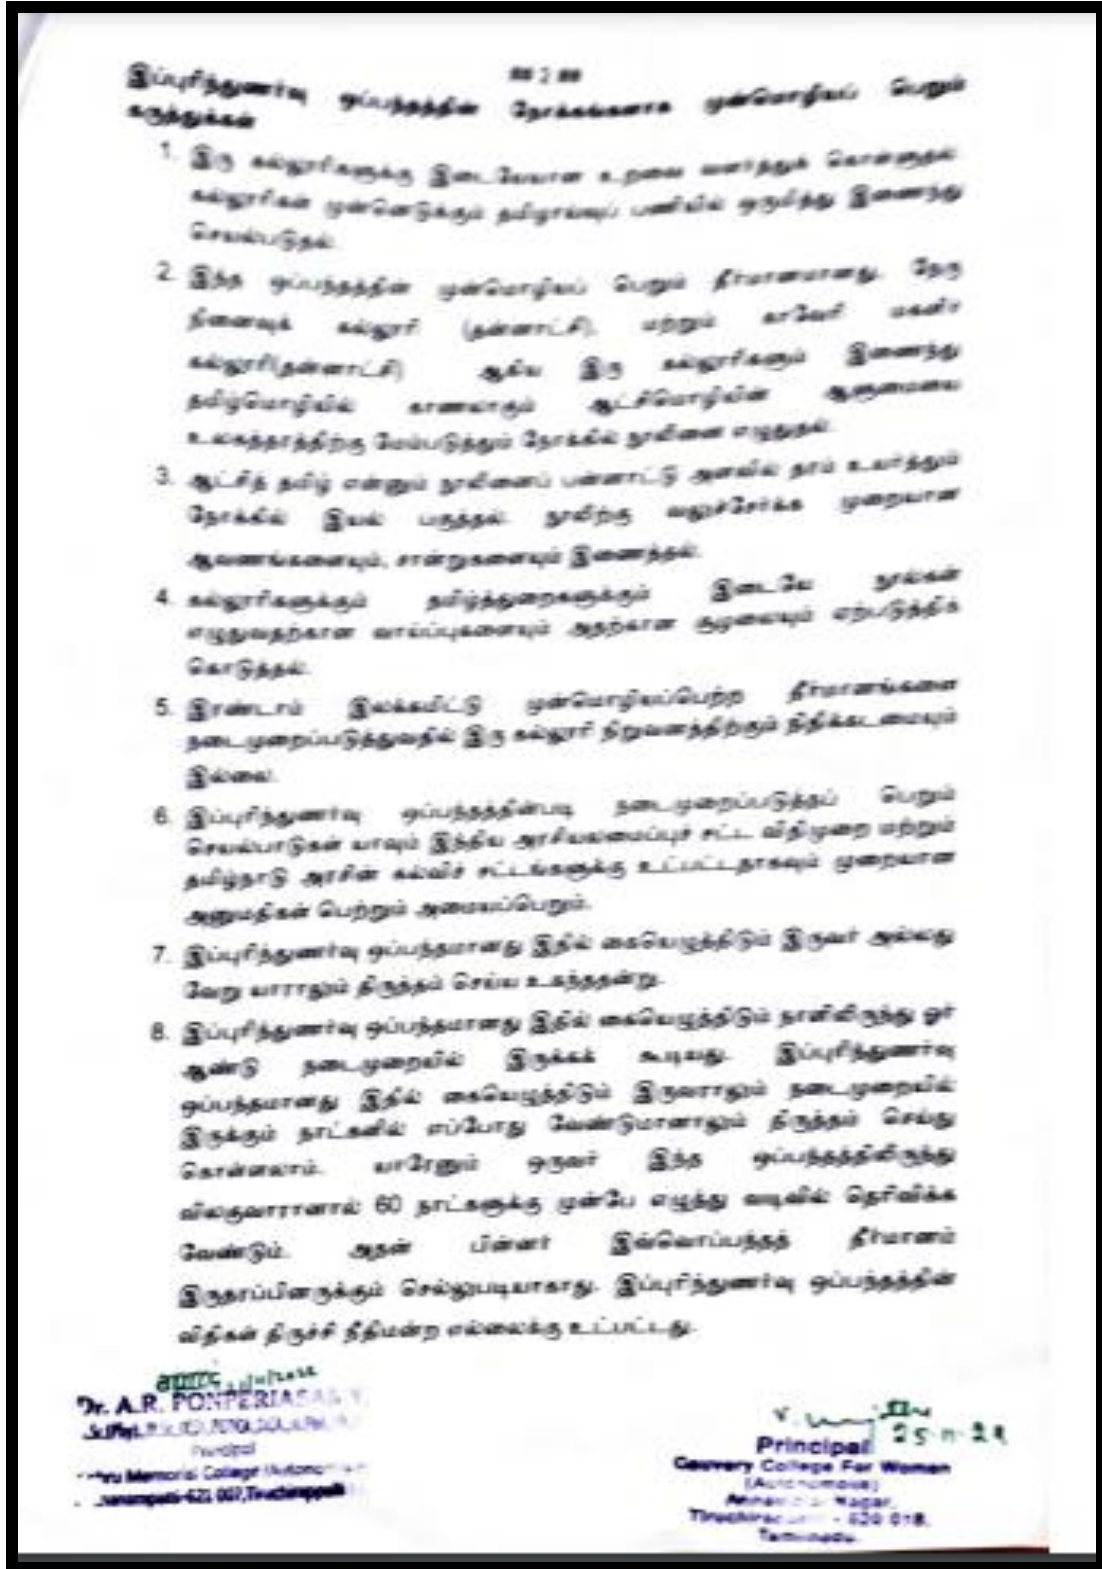 ** 2 **
இப்புரிந்துணர்வு ஒப்பந்தத்தின் நோக்கங்களாக முன்மொழியப் பெறும்
கருத்துக்கள்
1. இரு கல்லூரிகளுக்கு இடையேயான உறவை வளர்த்துக் கொள்ளுதல்
கல்லூரிகள் முன்னெடுக்கும் தமிழாய்வுப் பணியில் ஒருமித்து இணைந்து
செயல்படுதல்.
2. இந்த ஒப்பந்தத்தின் முன்மொழியப் பெறும் தீர்மானமானது, நேரு
நினைவுக் கல்லூரி (தன்னாட்சி), மற்றும் காவேரி மகளிர்
கல்லூரி(தன்னாட்சி) ஆகிய இரு கல்லூரிகளும் இணைந்து
தமிழ்மொழியில் காணலாகும் ஆட்சிமொழியின் ஆளுமையை
உலகத்தரத்திற்கு மேம்படுத்தும் நோக்கில் நூலினை எழுதுதல்.
3. ஆட்சித் தமிழ் என்னும் நூலினைப் பன்னாட்டு அளவில் தரம் உயர்த்தும்
நோக்கில் இயல் பகுத்தல். நூலிற்கு வலுச்சேர்க்க முறையான
ஆவணங்களையும், சான்றுகளையும் இணைத்தல்.
4. கல்லூரிகளுக்கும் தமிழ்த்துறைகளுக்கும் இடையே நூல்கள்
எழுதுவதற்கான வாய்ப்புகளையும் அதற்கான சூழலையும் ஏற்படுத்திக்
கொடுத்தல்.
5. இரண்டாம் இலக்கமிட்டு முன்மொழியப்பெற்ற தீர்மானங்களை
நடைமுறைப்படுத்துவதில் இரு கல்லூரி நிறுவனத்திற்கும் நிதிக்கடமையும்
இல்லை.
6. இப்புரிந்துணர்வு ஒப்பந்தத்தின்படி நடைமுறைப்படுத்தப் பெறும்
செயல்பாடுகள் யாவும் இந்திய அரசியலமைப்புச் சட்ட விதிமுறை மற்றும்
தமிழ்நாடு அரசின் கல்விச் சட்டங்களுக்கு உட்பட்டதாகவும் முறையான
அனுமதிகள் பெற்றும் அமையப்பெறும்.
7. இப்புரிந்துணர்வு ஒப்பந்தமானது இதில் கையெழுத்திடும் இருவர் அல்லது
வேறு யாராலும் திருத்தம் செய்ய உகந்ததன்று.
8. இப்புரிந்துணர்வு ஒப்பந்தமானது இதில் கையெழுத்திடும் நாளிலிருந்து ஓர்
ஆண்டு நடைமுறையில் இருக்கக் கூடியது. இப்புரிந்துணர்வு
ஒப்பந்தமானது இதில் கையெழுத்திடும் இருவராலும் நடைமுறையில்
இருக்கும் நாட்களில் எப்போது வேண்டுமானாலும் திருத்தம் செய்து
கொள்ளலாம். யாரேனும் ஒருவர் இந்த ஒப்பந்தத்திலிருந்து
விலகுவாரானால் 60 நாட்களுக்கு முன்பே எழுத்து வடிவில் தெரிவிக்க
வேண்டும். அதன் பின்னர் இவ்வொப்பந்தத் தீர்மானம்
இருதரப்பினருக்கும் செல்லுபடியாகாது. இப்புரிந்துணர்வு ஒப்பந்தத்தின்
விதிகள் திருச்சி நீதிமன்ற எல்லைக்கு உட்பட்டது.
Dr. A.R. PONPERIASA
Principal
Memorial College (Autonom
621 007, Tiruchirappalli
Principal
Cauvery College For Women
(Autonomous)
Annamalai Nagar,
Tiruchirappalli - 620 018.
Tamilnadu.